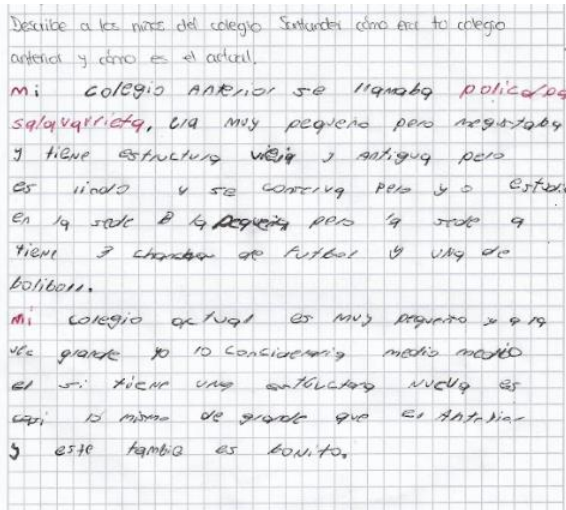 Describe a los niños del colegio Santander cómo era tu colegio
anterior y cómo es el actual.
mi colegio Anterior se llamaba policarpa
salavarrieta, era muy pequeño pero megustaba
y tiene estructura vieja y antigua pero
es lindo y se conserva pero yo estudi
en la sede B la pequeña pero la sede a
tiene 3 chanchas de futbol y una de
bolibol.
mi colegio actual es muy pequeño y a la
vec grande yo lo concideraria medio medio
el si tiene una nueva es
casi lo mismo de grande que el Anterior
y este tambie es bonito.